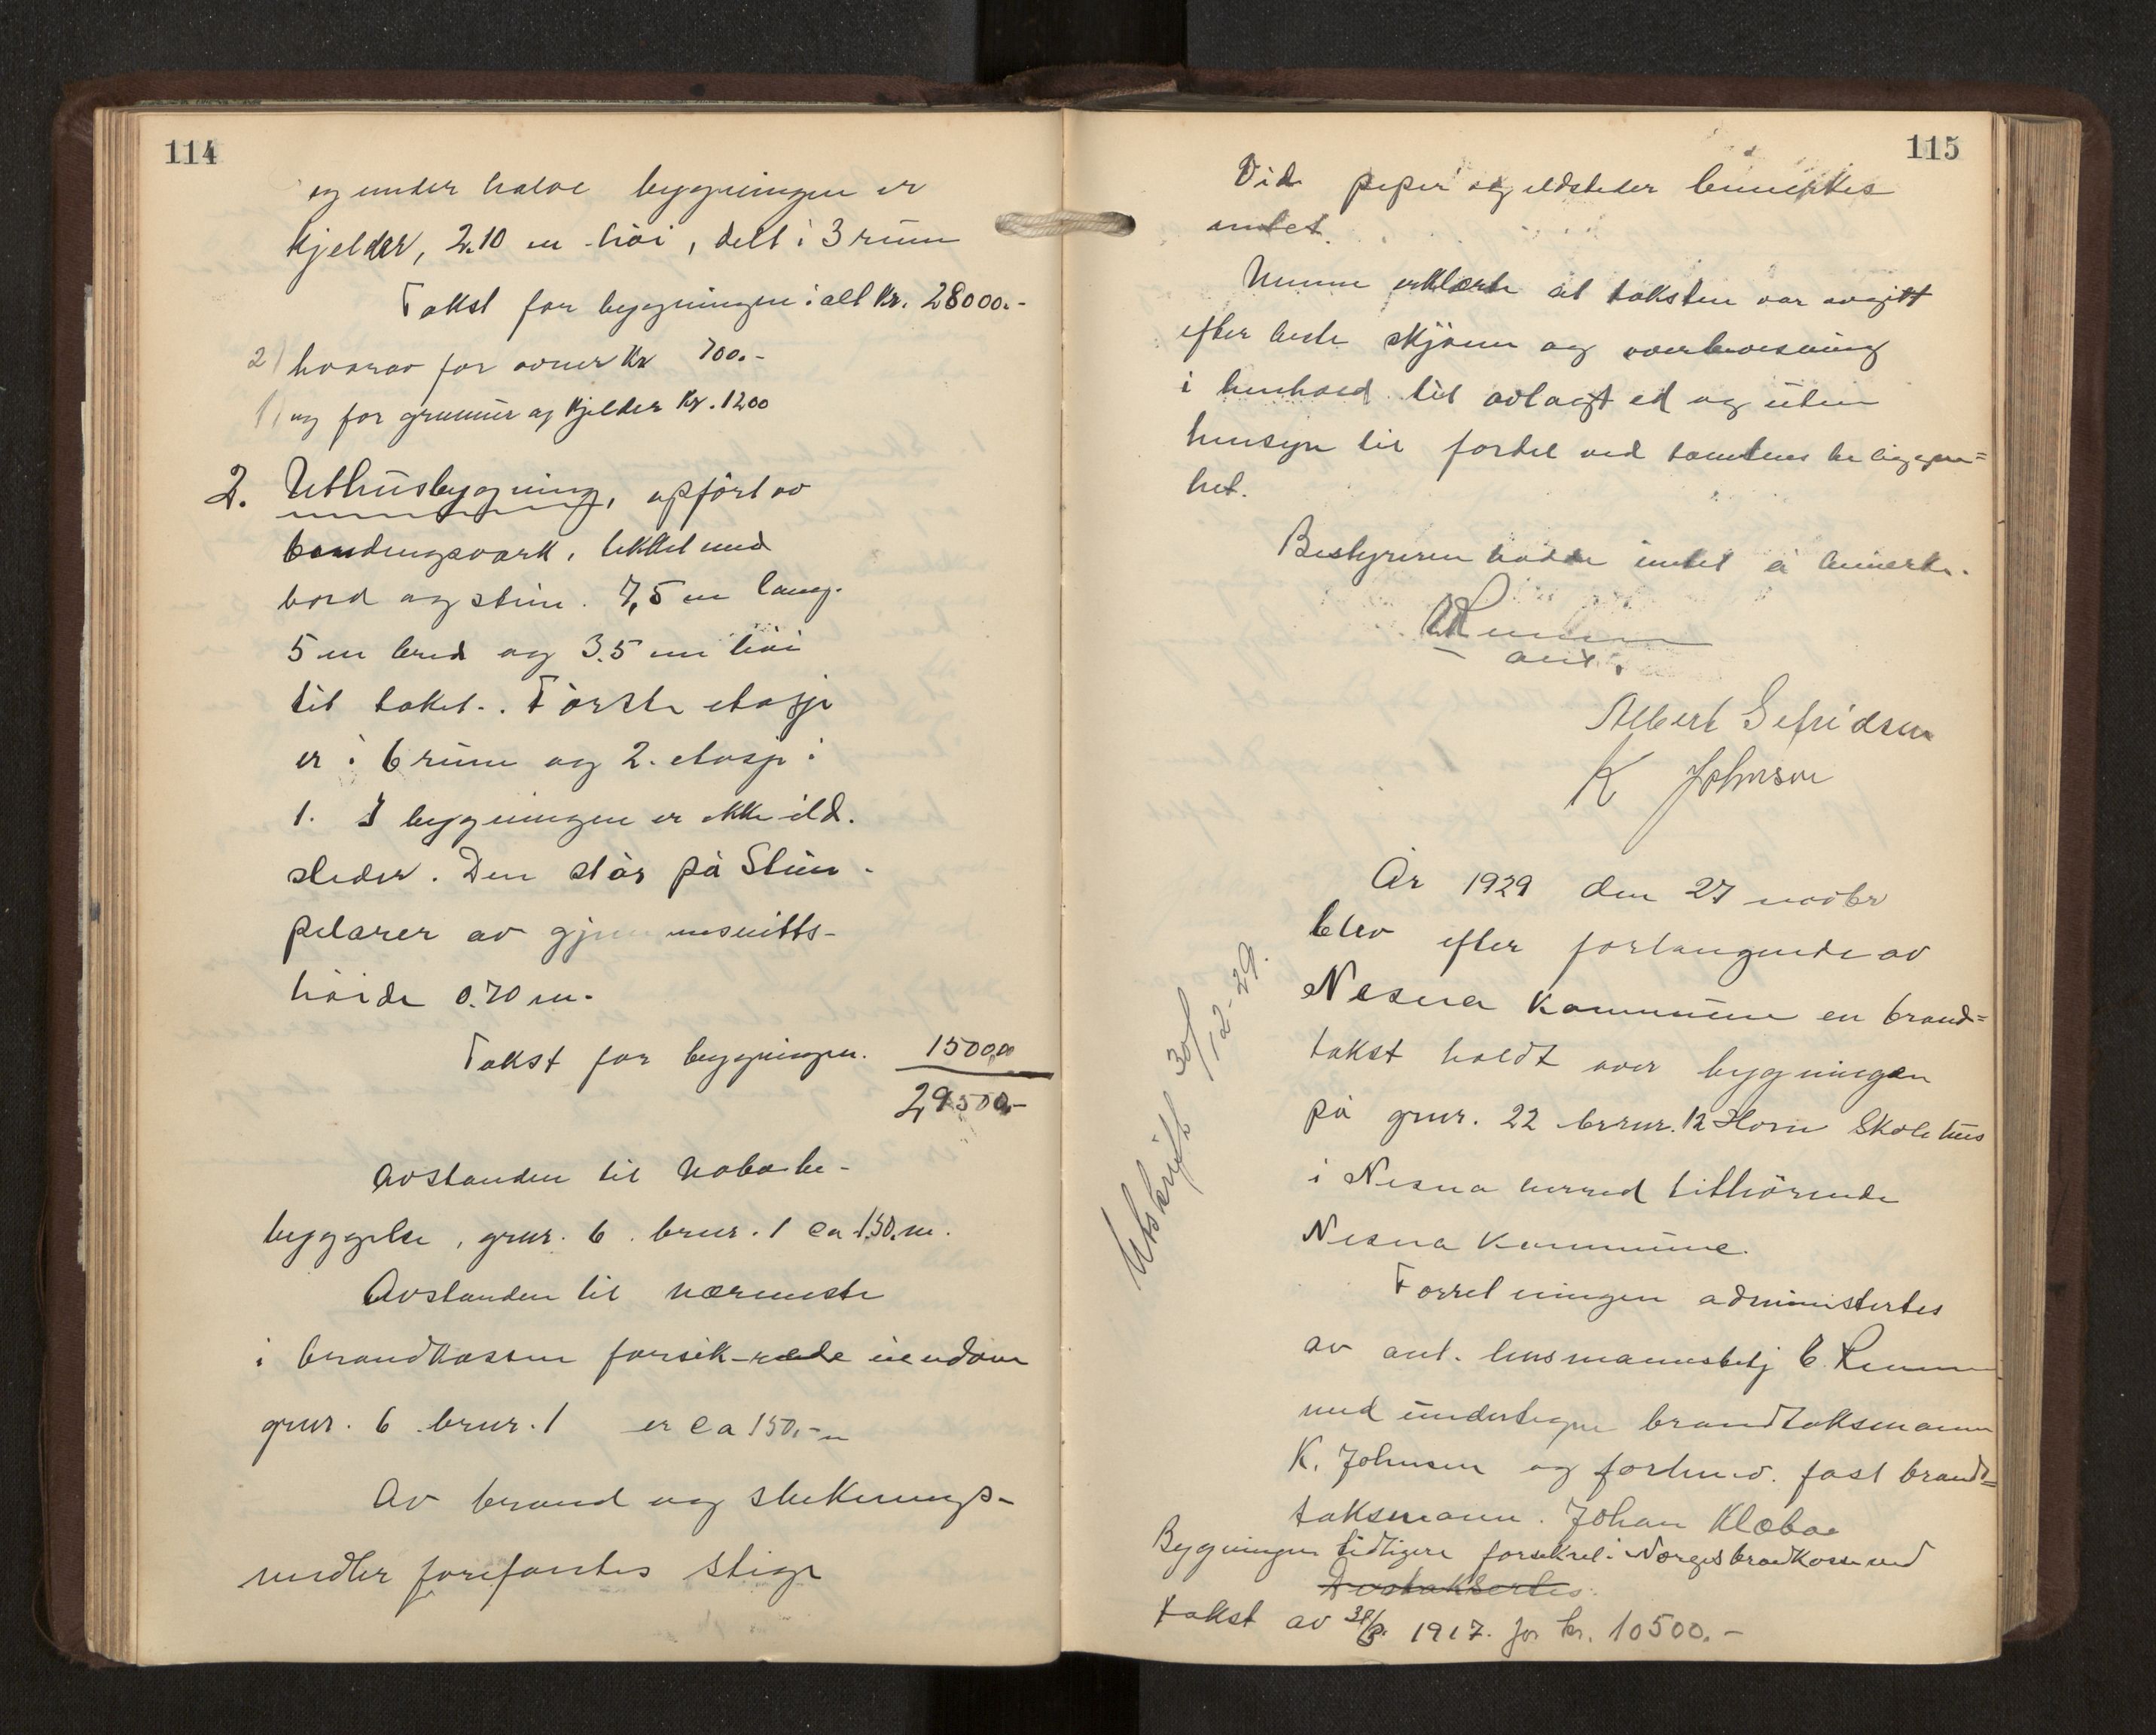 114
og under halve bygningen er
kjelder, 2.10 m höi, delt i 3 rum
Takst for bygningen i alt kr. 28000.-
2) hvorav for ovner kr 700.-
1) og for grunmur og kjelder kr. 1200
2. Uthusbygning, opfört av
bindingsverk, tekket med
bord og sten. 7,5 m lang.
5 m bred og 3.5 m höi
til taket. Förste etasje
er i 6 rum og 2. etasje i
1. I bygningen er ikke ild-
steder. Den står på Sten-
pilarer av gjennemsnitts-
höide 0.70 m.
Takst for bygningen. 1500,00
29500,-
Avstanden til nabobe-
byggelse, gnr. 6. bnr. 1 ca 150.m.
Avstanden til nærmeste
i brandkassen forsik-rede eiendom
gnr. 6 bnr. 1 er ca 150,- m
Av brand og slukings-
midler forefantes stige
115
Ved piper og ildsteder bemerktes
intet.
Menn erklærte at taksten var avgitt
efter beste skjönn og overbevisning
i henhold til avlagt ed og uten
hensyn til fordel ved tomtens beliggen=
het.
Bestyreren hadde intet å bemerke.
aut.
Albert Sefridsen
K Johnsen
År 1929 den 27 novbr
blev efter forlangende av
Nesna kommune en brand=
takst holdt over bygningen
på gnr. 22 brnr. 12 Horn Skolehus
i Nesna herred tilhörende
Nesna kommune.
Utskrift 30/12-29.
Forretningen administertes
av aut. lensmannsbetj C.
med undertegne brandtaksmann
K. Johnsen og fast brand=
taksmann. Johan Klæboe
Bygningen tidligere forsikret i Norges brandkasse ved
Avstaksertes.
takst av 1917. for kr. 10500.-